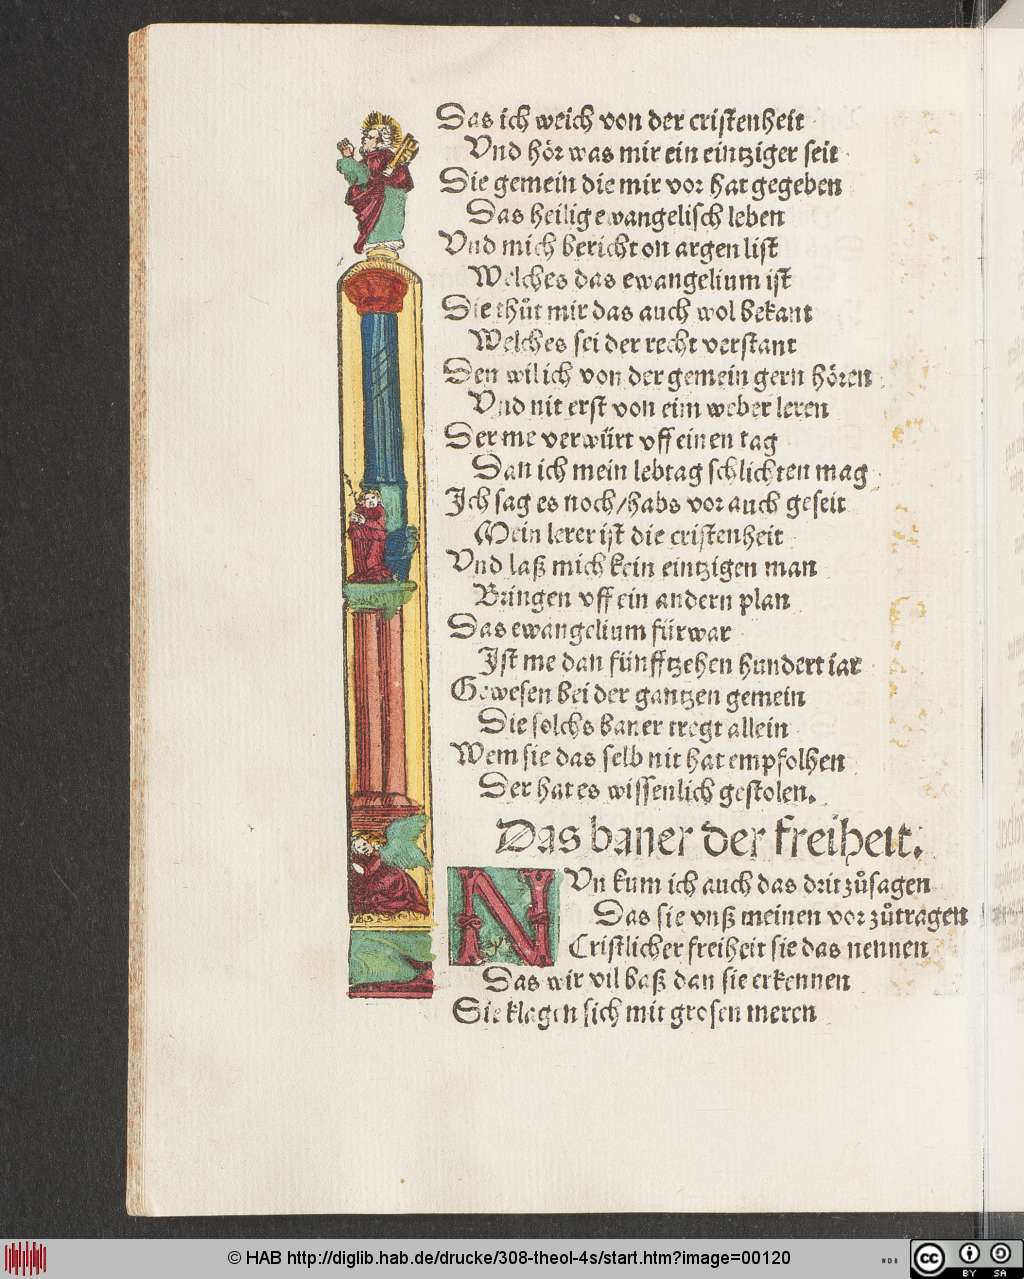 Das ich weich von der cristenheit
Vnd hör was mir ein eintziger seit
Die gemein die mir vor hat gegeben
Das heilig ewangelisch leben
Vnd mich bericht on argen list
Welches das ewangelium ist
Die thůt mir das auch wol bekant
Welches sei der recht verstant
Den wil ich von der gemein gern hören
Vnd nit erst von eim weber leren
Der me verwürt vff einen tag
Dan ich mein lebtag schlichten mag
Ich sag es noch/habs vor auch geseit
Mein lerer ist die cristenheit
Vnd laß mich kein eintzigen man
Bringen vff ein andern plan
Das ewangelium fürwar
Ist me dan fünfftzehen hundert iar
Gewesen bei der gantzen gemein
Die solchs baner tregt allein
Wem sie das selb nit hat empfolhen
Der hat es wissenlich gestolen.
Das baner der freiheit.
NVn kum ich auch das drit zůsagen
Das sie vnß meinen vor zůtragen
Cristlicher freiheit sie das nennen
Das wir vil baß dan sie erkennen
Sie klagen sich mit grosen meren
© HAB http://diglib.hab.de/drucke/308-theol-4s/start.htm?image=00120
WDB
cc BY SA